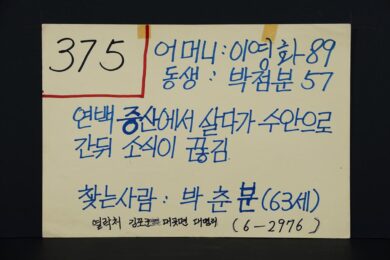 375
어머니:이영화 89
동생 : 박점분 57
연백 증산에서 살다가 수안으로
간뒤 소식이 끊김
찾는사람 : 박춘분(63세)
연락처 김포군 대곶면 (6-2976)